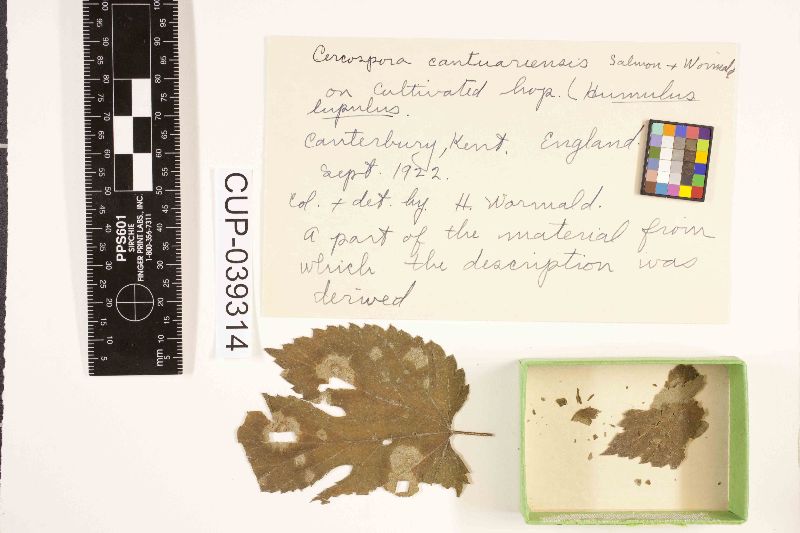 Cercospora cantuariensis Salmon + Wormald
on cultivated hop. (Humulus
lupulus.
Canterbury, Kent. England.
Sept. 1922.
Col. + det. by H. Wormald.
A part of the material from
which the description was
derived
CUP-039314
PPS601
SIRCHIE
FINGER PRINT LABS., INC.
1-800-356-7311
mm 5 10 15 20 25 30 35 40 45 50 55 60 65 70 75 80 85 90 95 100